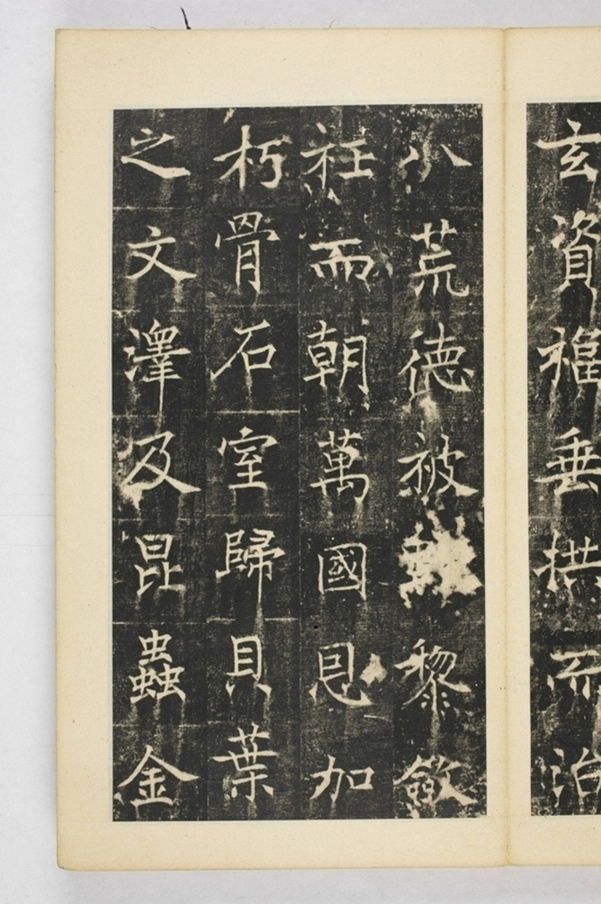 玄資福垂拱而治
八荒德被黎斂
衽而朝萬國恩加
朽骨石室歸貝葉
之文澤及昆蟲金